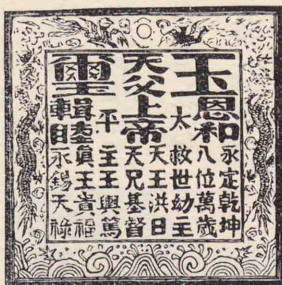 玉
恩和
永定乾坤
八位萬歲
救世幼主
太
天王洪日
天父上帝
天兄基督
主王輿篤
平
璽
輯睦
真王貴福
永錫天祿